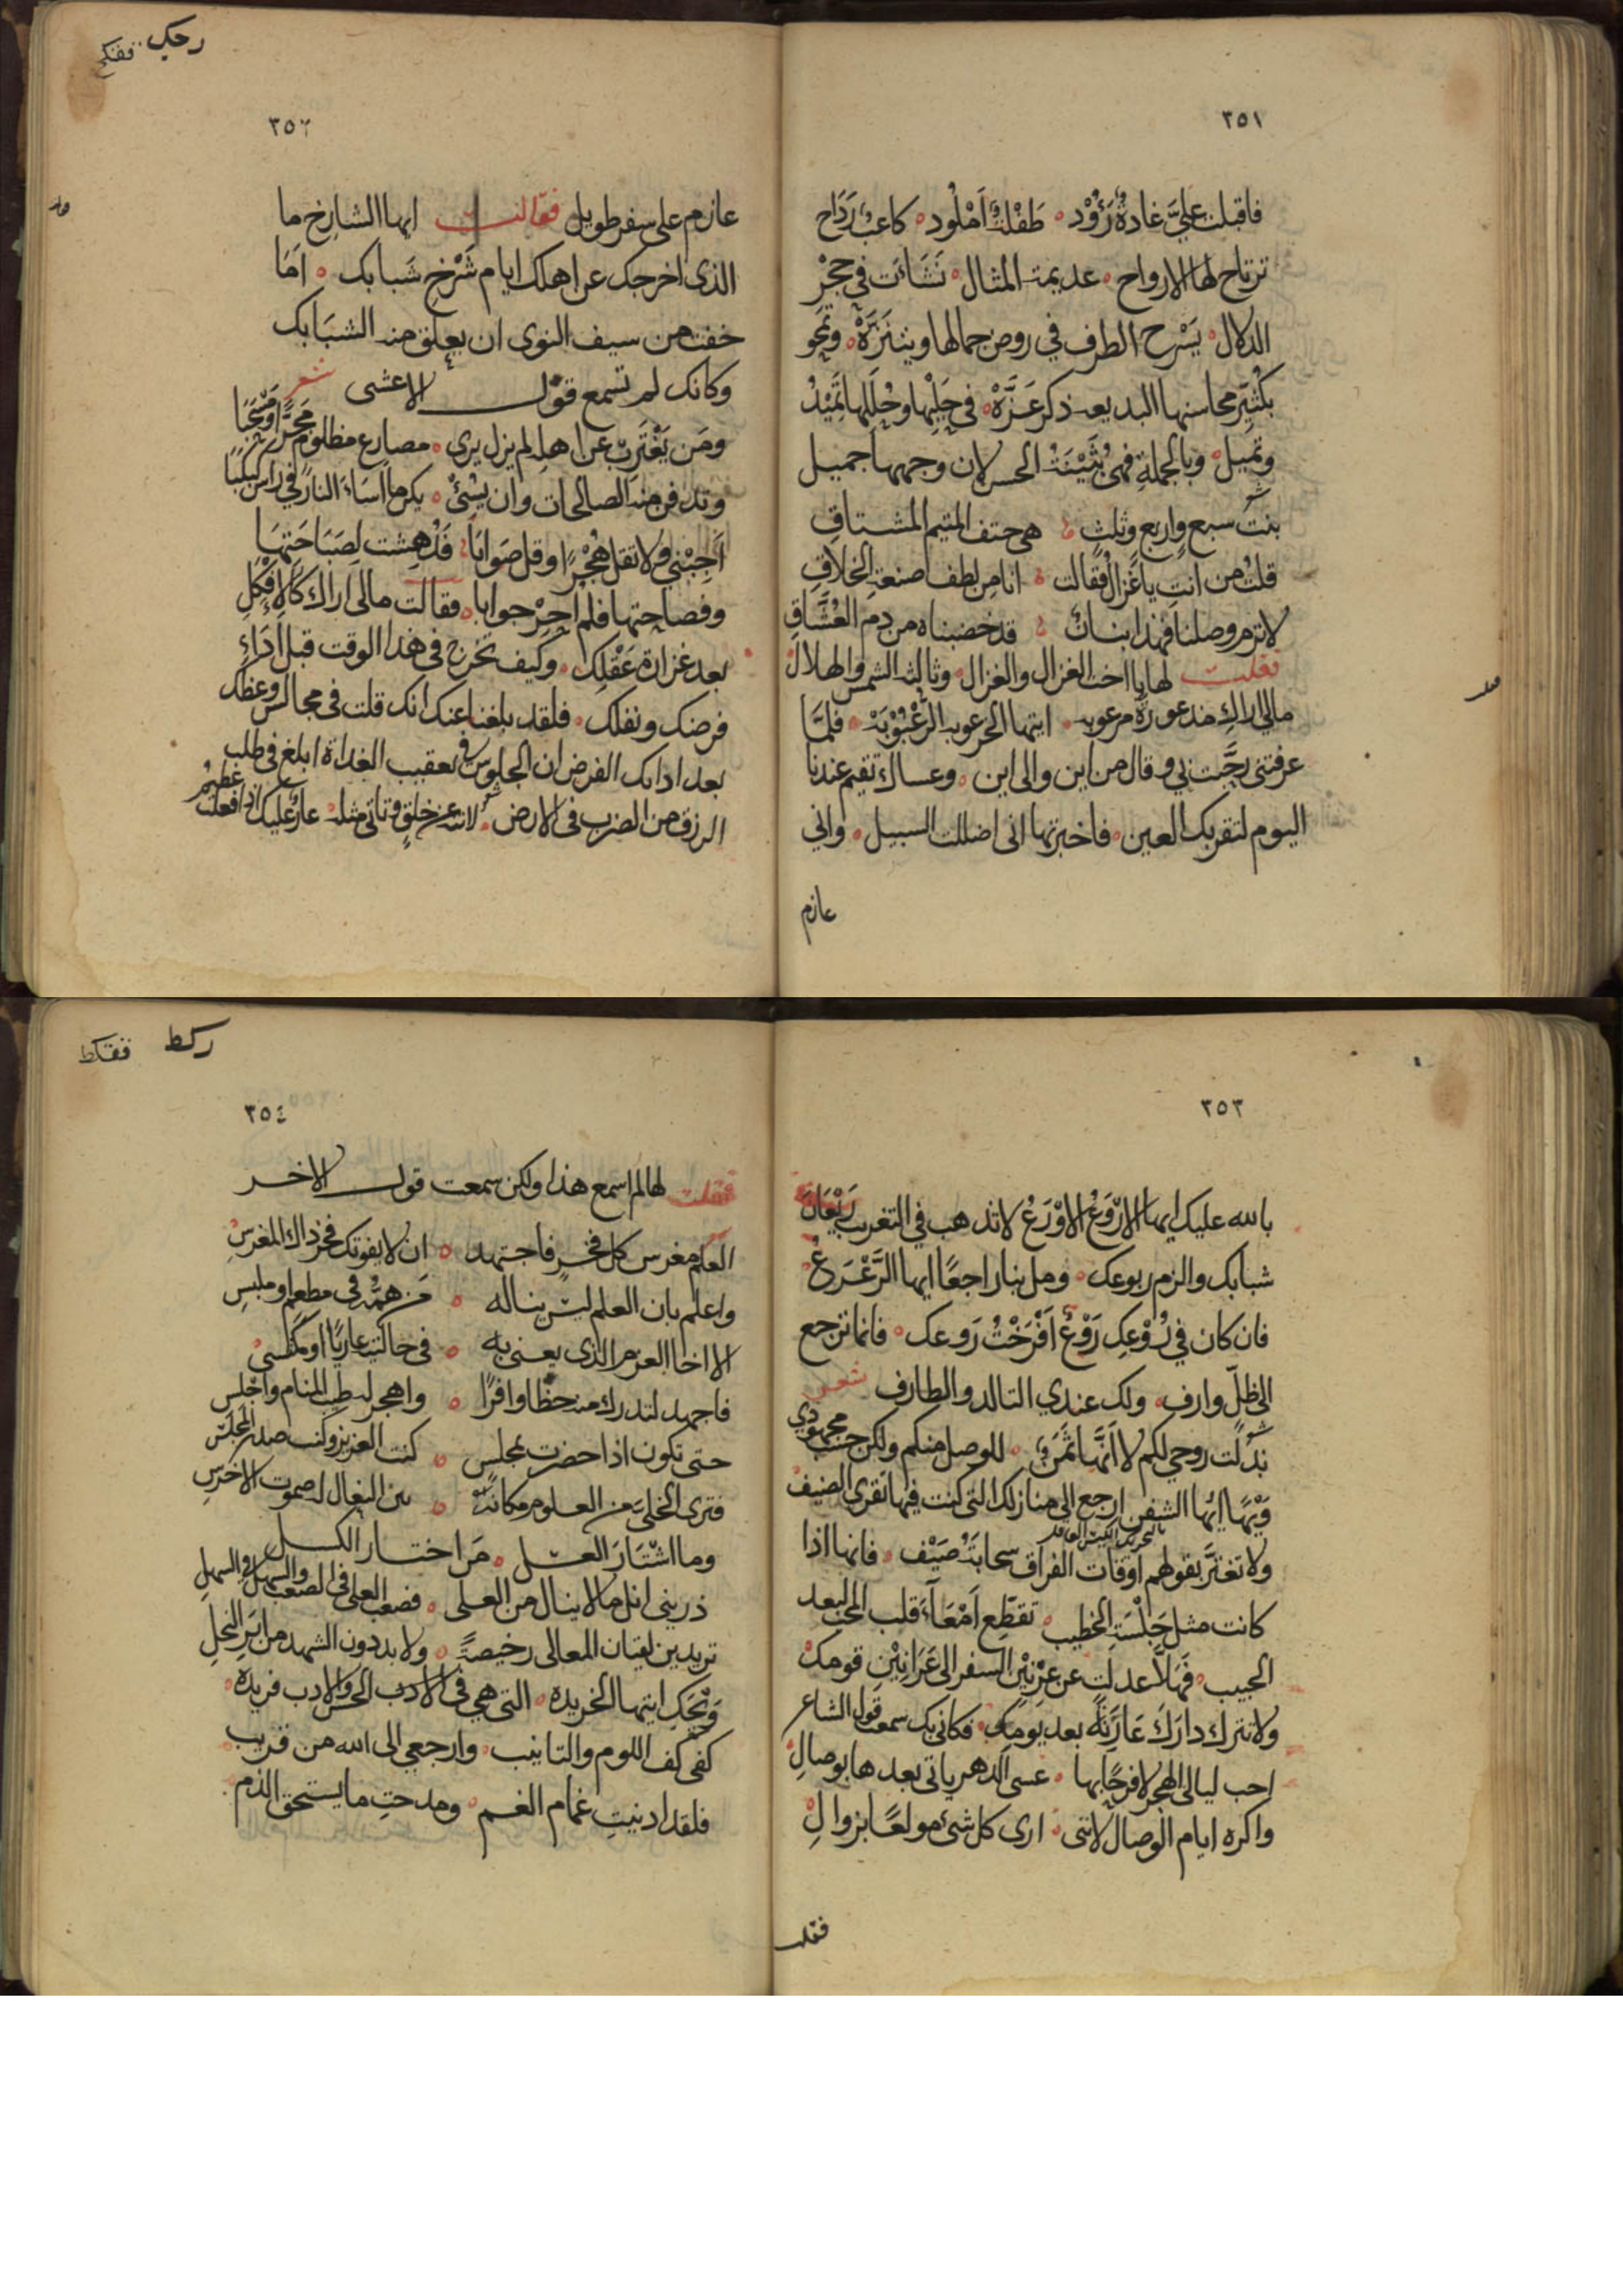 ٣٥١
فاقبلت عليَّ غادةٌ رُؤْد ۰ طَفْلَةٌ اَمْلُود ۰ كاعبٌ رَدَاح
ترتاح لها الارواح ۰ عديمة المثال ۰ نَشَاَت في حِجْر
الدلال ۰ يَسْرح الطرف في روض جمالها ويتنَزَّهْ ۰ وتمحو
بكُثَيِّر محاسنها البديعة ذكر عَزَّهْ ۰ في حَلْيِها وحُلَلِها تَمِيْدُ
وتميل ۰ وبالجملةِ فهي بُثَيْنَةُ الحسن لان وجهها جميل
بنتُ سبعٍ واربعٍ وثلثٍ هي حتف المتيم المشتاقِ
قلتُ من انتِ يا غزالُ فقالت انا من لطف صنعة الخلاقِ
لا ترم وصلنا فهذا بنانٌ قد خضبناه من دم العُشَّاقِ
فقلت لها يا اخت الغزال والغزال ۰ وثالثة الشمس والهلال ۰
مالي اراكِ مذعورةً مرعوبه ۰ ايتها الخرعوبة الرُّعْبُوْبَهْ ۰ فلمَّا
عرفتني رحَّبت بي وقال من اين والى اين ۰ وعساك تقيم عندنا
اليوم لتقر بك العين ۰ فاخبرتها اني اضللت السبيل ۰ واني
عازم
رحكي ففكح
٣٥٢
عازم على سفر طويل فقالت ايها الشارخ ما
الذي اخرجك عن اهلك ايام شَرْخ شَبابك ۰ اَمَا
خفت من سيف النوى ان يعلق منه الشبَابك
وكانك لم تسمع قول الاعشى شعر
ومَن يَغْتَرِبْ عن اهله لم يزل يرى ۰ مصارع مظلوم مَجَرًّا ومَسْحَبًا
وتدفن منه الصالحات وان يسئْ ۰ يكن ما اَسَاءَ النارَ في راس كبكبا
اَجِبْني ولا تقل هُجْرًا وقل صَوابًا ۰ فدُهِشت لِصَبَاحَتِهَا
وفصاحتها فلم اُحِرْ جوابا ۰ فقالت مالي اراك كالاِفْكَلِ
بعد غزارة عَقْلِك ۰ وكيف تخرج في هذا الوقت قبل اَدَاءِ
فرضك ونفلك ۰ فلقد بلغنا عنك انك قلت في مجالس وعظك
بعد ادابك الفرض ان الجلوس في تعقيب الغداة ابلغ في طلب
الرزق من الضرب في الارض ۰ لا تنه عن خلقٍ وتاتي مثله ۰ عارٌ عليك اذا فعلت عظيمُ
٣٥٣
بالله عليك ايها الاَرْوَعُ الاَوْرَعُ لا تذهب في التغريب رَيْعَانَ
شبابك والزم ربوعك ۰ ومل بنا راجعًا ايها الرَّعْرَعُ
فان كان في رُوْعِك رَوْعٌ اَفْرَخْتُ رَوعك ۰ فانما ترجع
الى ظلٍّ وارف ۰ ولك عندي التالد والطارف شعر
بذلت روحي لكم لا اَنَّها ثمَنٌ ۰ للوصل منكم ولكن حسب مجهودي
وَيْهًا ايُّها الشفن ارجع الى منازلك التي كنت فيها تقري الضيف
ولا تغترَّ بقولهم اوقات الفراق سحابَةُ صَيْف ۰ فانها اذا
كانت مثل جَلْسَةِ الخطيب ۰ تقطِّع اَمْعَاءَ قلب المحب لبعد
الحبيب ۰ فهلاَّ عدلت عن عِرْنِيْنِ السفر الى عَرَانِيْنِ قومك
ولا تترك دارك عَارِيَةً بعد يومك ۰ فكاني بك سمعت قول الشاعر
احب ليالي الهجر لا فرحًا بها ۰ عسى الدهر ياتي بعدها بوصالِ
واكره ايام الوصال لانني ۰ ارى كل شئ مولعًا بزوالِ
فقلت
ركط ففكط
٣٥٤
فقلت لها لم اسمع هذا ولكن سمعت قول الاخر
العلم مغرس كل فخرٍ فاجتهد ۰ ان لا يفوتك فخر ذاك المغرسِ
واعلم بان العلم ليس يناله ۰ مَن همُّه في مطعمٍ او ملبسِ
الا اخا العزم الذي يعنى به ۰ في حالتيه عاريًا او مكتسي
فاجهد لتدرك منه حظًّا وافرًا ۰ واهجر له طيب المنام واجلسِ
حتى تكون اذا حضرت بمجلس ۰ كنت العزيز وكنت صدر المجلسِ
فترى الخليَّ من العلوم مكانه ۰ بين النعال له صموت الاخرسِ
وما اشْتَارَ العسل ۰ مَن اختار الكسل
ذريني انل ما لا ينال من العلى ۰ فصعب العلى في الصعب والسهل في السهلِ
تريدين لقيان المعالي رخيصةً ۰ ولا بد دون الشهد من ابَرِ النحلِ
وَيْحَكِ ايتها الخريده ۰ التي هي في الحسن والادب فريده ۰
كفي كف اللوم والتانيب ۰ وارجعي الى الله من قريب ۰
فلقد ادنيتِ غمام الغم ۰ ومدحتِ ما يستحق الذم